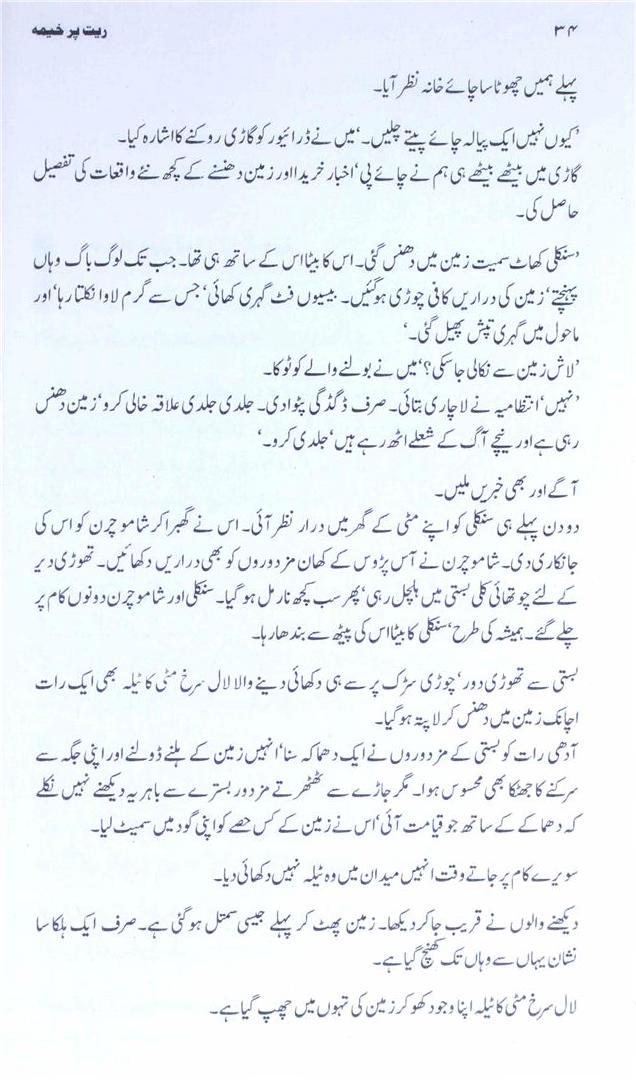 ۳۴
ریت پر خیمہ
پہلے ہمیں چھوٹا سا چائے خانہ نظر آیا۔
’کیوں نہیں ایک پیالہ چائے پیتے چلیں۔‘ میں نے ڈرائیور کو گاڑی روکنے کا اشارہ کیا۔
گاڑی میں بیٹھے بیٹھے ہی ہم نے چائے پی‘ اخبار خریدا اور زمین دھنسنے کے کچھ نئے واقعات کی تفصیل
حاصل کی۔
’سنکلی کھاٹ سمیت زمین میں دھنس گئی۔ اس کا بیٹا اس کے ساتھ ہی تھا۔ جب تک لوگ باگ وہاں
پہنچتے‘ زمین کی دراریں کافی چوڑی ہو گئیں۔ بیسیوں فٹ گہری کھائی‘ جس سے گرم لاوا نکلتا رہا‘ اور
ماحول میں گہری تپش پھیل گئی۔‘
’لاش زمین سے نکالی جا سکی؟‘ میں نے بولنے والے کو ٹوکا۔
’نہیں‘ انتظامیہ نے لاچاری بتائی۔ صرف ڈگڈگی پٹوا دی۔ جلدی جلدی علاقہ خالی کرو‘ زمین دھنس
رہی ہے اور نیچے آگ کے شعلے اٹھ رہے ہیں‘ جلدی کرو۔‘
آگے اور بھی خبریں ملیں۔
دو دن پہلے ہی سنکلی کو اپنے مٹی کے گھر میں درار نظر آئی۔ اس نے گھبرا کر شاموچرن کو اس کی
جانکاری دی۔ شاموچرن نے آس پڑوس کے کھان مزدوروں کو بھی دراریں دکھائیں۔ تھوڑی دیر
کے لئے چوتھائی کلی بستی میں ہلچل رہی‘ پھر سب کچھ نارمل ہو گیا۔ سنکلی اور شاموچرن دونوں کام پر
چلے گئے۔ ہمیشہ کی طرح‘ سنکلی کا بیٹا اس کی پیٹھ سے بندھا رہا۔
بستی سے تھوڑی دور‘ چوڑی سڑک پر سے ہی دکھائی دینے والا لال سرخ مٹی کا ٹیلہ بھی ایک رات
اچانک زمین میں دھنس کر لاپتہ ہو گیا۔
آدھی رات کو بستی کے مزدوروں نے ایک دھماکہ سنا‘ انہیں زمین کے ہلنے ڈولنے اور اپنی جگہ سے
سرکنے کا جھٹکا بھی محسوس ہوا۔ مگر جاڑے سے ٹھٹھرتے مزدور بسترے سے باہر یہ دیکھنے نہیں نکلے
کہ دھماکے کے ساتھ جو قیامت آئی‘ اس نے زمین کے کس حصے کو اپنی گود میں سمیٹ لیا۔
سویرے کام پر جاتے وقت انہیں میدان میں وہ ٹیلہ نہیں دکھائی دیا۔
دیکھنے والوں نے قریب جا کر دیکھا۔ زمین پھٹ کر پہلے جیسی سمتل ہو گئی ہے۔ صرف ایک ہلکا سا
نشان یہاں سے وہاں تک کھنچ گیا ہے۔
لال سرخ مٹی کا ٹیلہ اپنا وجود کھو کر زمین کی تہوں میں چھپ گیا ہے۔